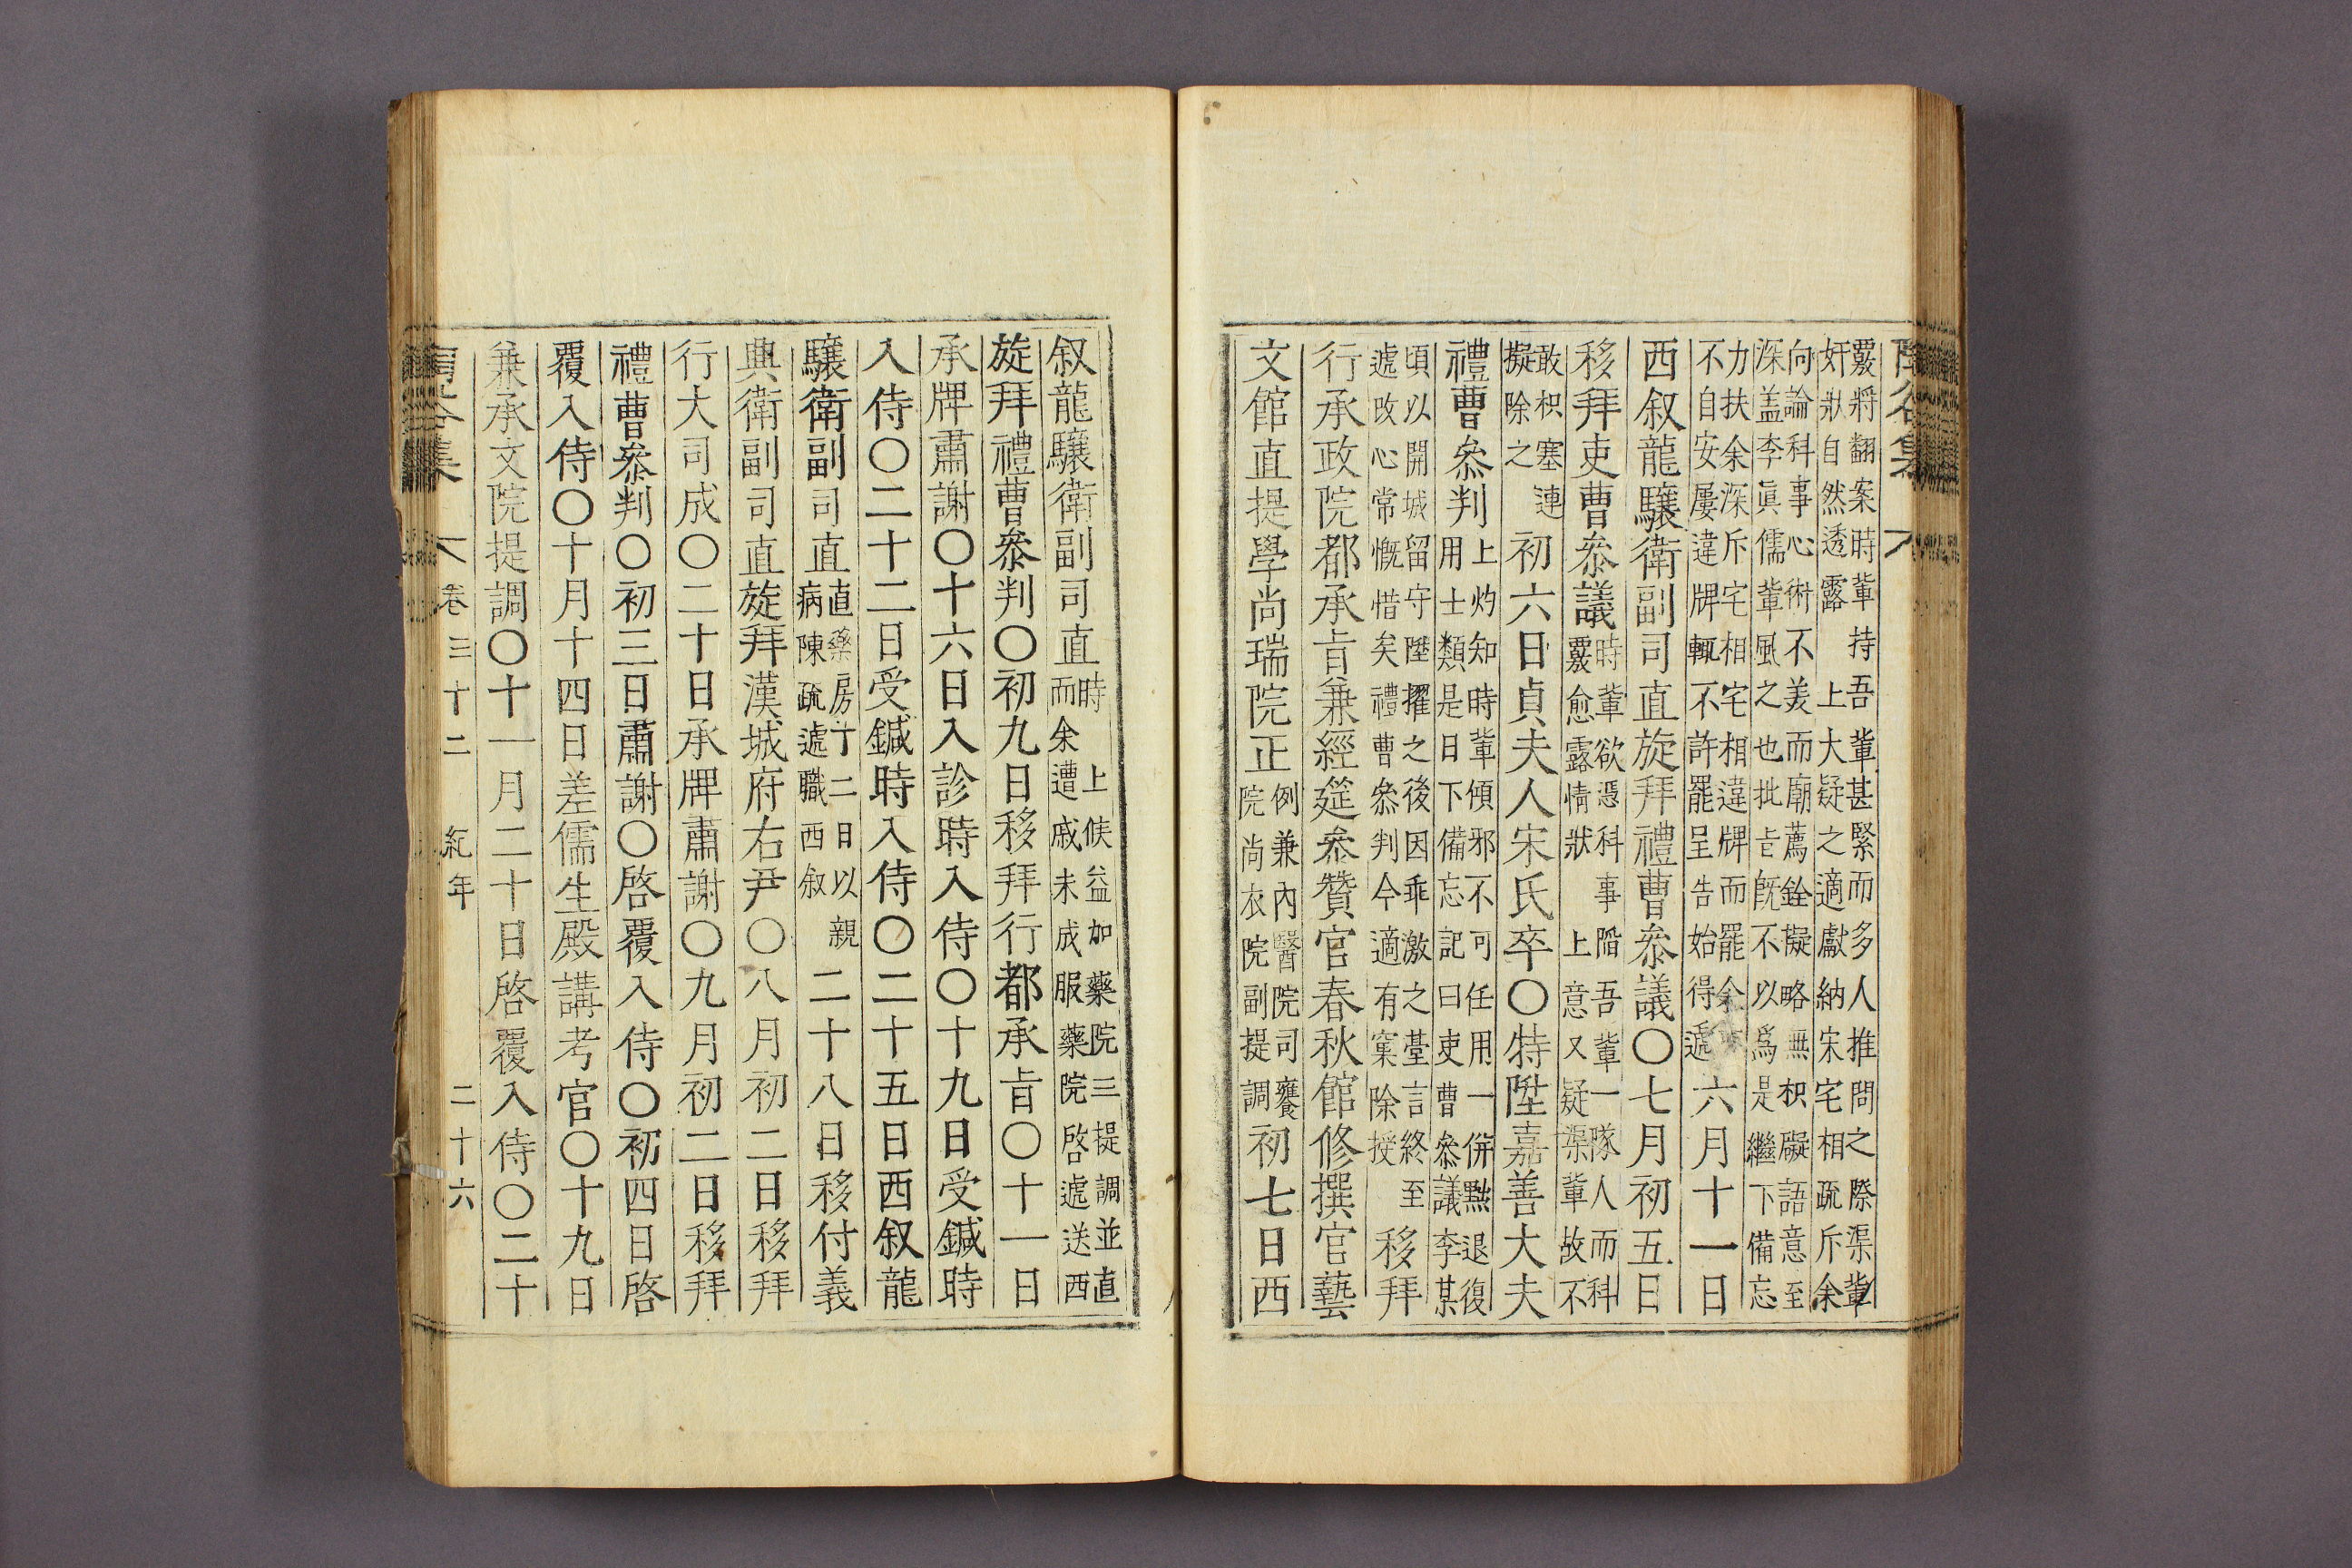 陶谷集
覈將翻案時輩持吾輩甚緊而多人推問之際渠輩
奸狀自然透露 上大疑之適獻納宋宅相疏斥余
向論科事心術不美而廟薦銓擬略無枳礙語意至
深盖李眞儒輩風之也批旨旣不以爲是繼下備忘
力扶余深斥宅相宅相違牌而罷余
不自安屢違牌輒不許罷呈告始得遞
六月十一日
西叙龍驤衛副司直旋拜禮曹叅議〇七月初五日
移拜吏曹叅議
時輩欲憑科事陷吾輩一隊人而科
覈愈露情狀 上意又疑渠輩故不
敢枳塞連
擬除之
初六日貞夫人宋氏卒〇特陞嘉善大夫
禮曹叅判
上灼知時輩傾邪不可任用一倂黜退復
用士類是日下備忘記曰吏曹叅議李某
頃以開城留守陞擢之後因乖激之臺言終至
遞改心常慨惜矣禮曹叅判今適有窠除授
移拜
行承政院都承旨兼經筵叅贊官春秋館修撰官藝
文館直提學尚瑞院正
例兼內醫院司饔
院尚衣院副提調
初七日西
叙龍驤衛副司直
時 上候益加藥院三提調並直
而余遭戚未成服藥院啓遞送西
旋拜禮曹叅判〇初九日移拜行都承旨〇十一日
承牌肅謝〇十六日入診時入侍〇十九日受鍼時
入侍〇二十二日受鍼時入侍〇二十五日西叙龍
驤衛副司直
直藥房十二日以親
病陳疏遞職西叙
二十八日移付義
興衛副司直旋拜漢城府右尹〇八月初二日移拜
行大司成〇二十日承牌肅謝〇九月初二日移拜
禮曹叅判〇初三日肅謝〇啓覆入侍〇初四日啓
覆入侍〇十月十四日差儒生殿講考官〇十九日
兼承文院提調〇十一月二十日啓覆入侍〇二十
陶谷集 卷三十二 紀年 二十六